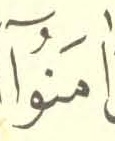 اٰمَنُوْٓا